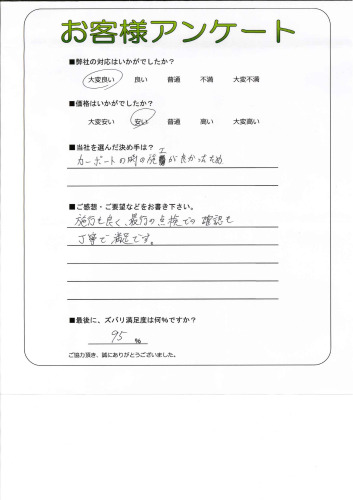 お客様アンケート
■弊社の対応はいかがでしたか？
大変良い 良い 普通 不満 大変不満
■価格はいかがでしたか？
大変安い 安い 普通 高い 大変高い
■当社を選んだ決め手は？
カーポートの時の施工が良かったため
■ご感想・ご要望などをお書き下さい。
施行も良く、最后の点検での確認も
丁寧で満足です。
■最後に、ズバリ満足度は何%ですか？
95 %
ご協力頂き、誠にありがとうございました。